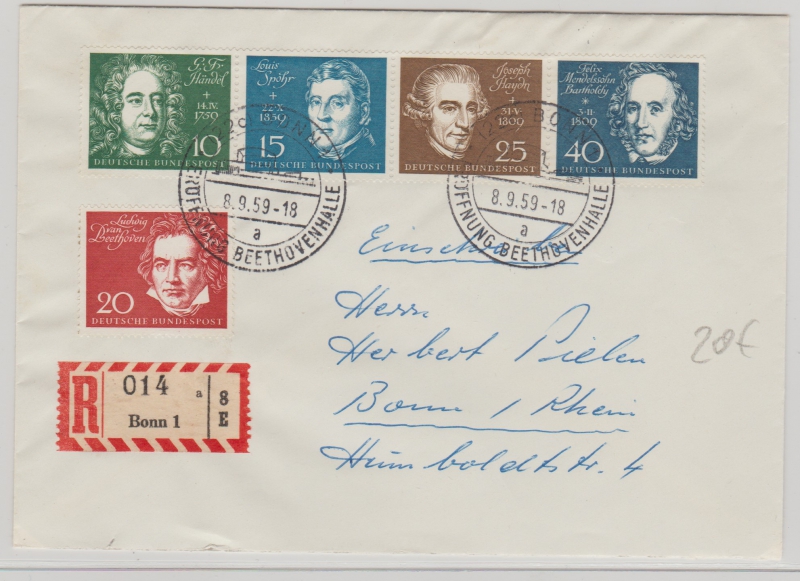 G. Fr.
Händel
+
14.IV.
1759
10
DEUTSCHE BUNDESPOST
Louis
Spohr
+
22.X.
1859
15
DEUTSCHE BUNDESPOST
Joseph
Haydn
+
31.V.
1809
25
DEUTSCHE BUNDESPOST
Felix
Mendelssohn
Bartholdy
*
3.II.
1809
40
DEUTSCHE BUNDESPOST
BONN
8.9.59-18
a
ERÖFFNUNG BEETHOVENHALLE
BONN
8.9.59-18
a
ERÖFFNUNG BEETHOVENHALLE
Ludwig
van
Beethoven
20
DEUTSCHE BUNDESPOST
Einschreiben
Herrn
Herbert Pielen
Bonn / Rhein
Humboldtstr. 4
20€
R
014 a
Bonn 1
8
E